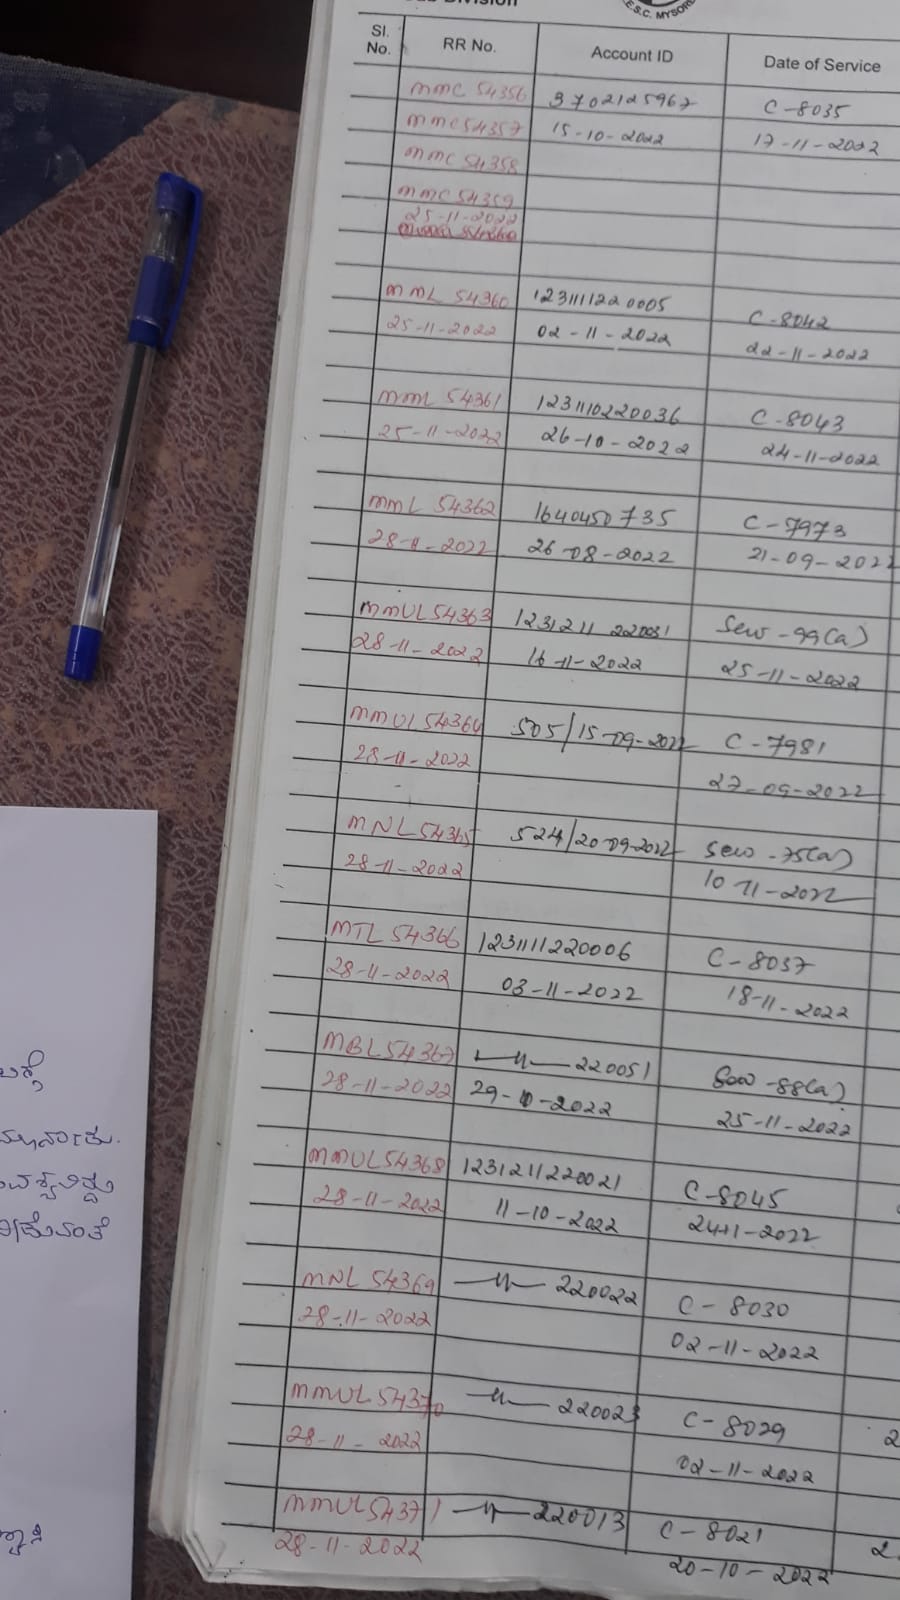 Division
E.S.C. MYSOR
Sl. No. RR No. Account ID Date of Service
MMC 54356 3702125967 C-8035
MMC 54357 15-10-2022 17-11-2022
MMC 54358
MMC 54359
25-11-2022
MML 54360 1231111220005 C-8042
25-11-2022 02-11-2022 22-11-2022
MML 54361 1231110220036 C-8043
25-11-2022 26-10-2022 24-11-2022
MML 54362 1640450735 C-7973
28-11-2022 26-08-2022 21-09-2022
MMUL 54363 1231211220031 Sew-99(a)
28-11-2022 16-11-2022 25-11-2022
MMUL 54364 505/15-09-2022 C-7981
28-11-2022 27-09-2022
MNL 54365 524/20-09-2022 Sew-75(a)
28-11-2022 10-11-2022
MTL 54366 1231111220006 C-8037
28-11-2022 03-11-2022 18-11-2022
MBL 54367 —〃— 220051 Sew-88(a)
28-11-2022 29-10-2022 25-11-2022
MMUL 54368 1231211220021 C-8045
28-11-2022 11-10-2022 24-11-2022
MNL 54369 —〃— 220022 C-8030
28-11-2022 02-11-2022
MMUL 54370 —〃— 220023 C-8029
28-11-2022 02-11-2022
MMUL 54371 —〃— 220013 C-8021
28-11-2022 20-10-2022